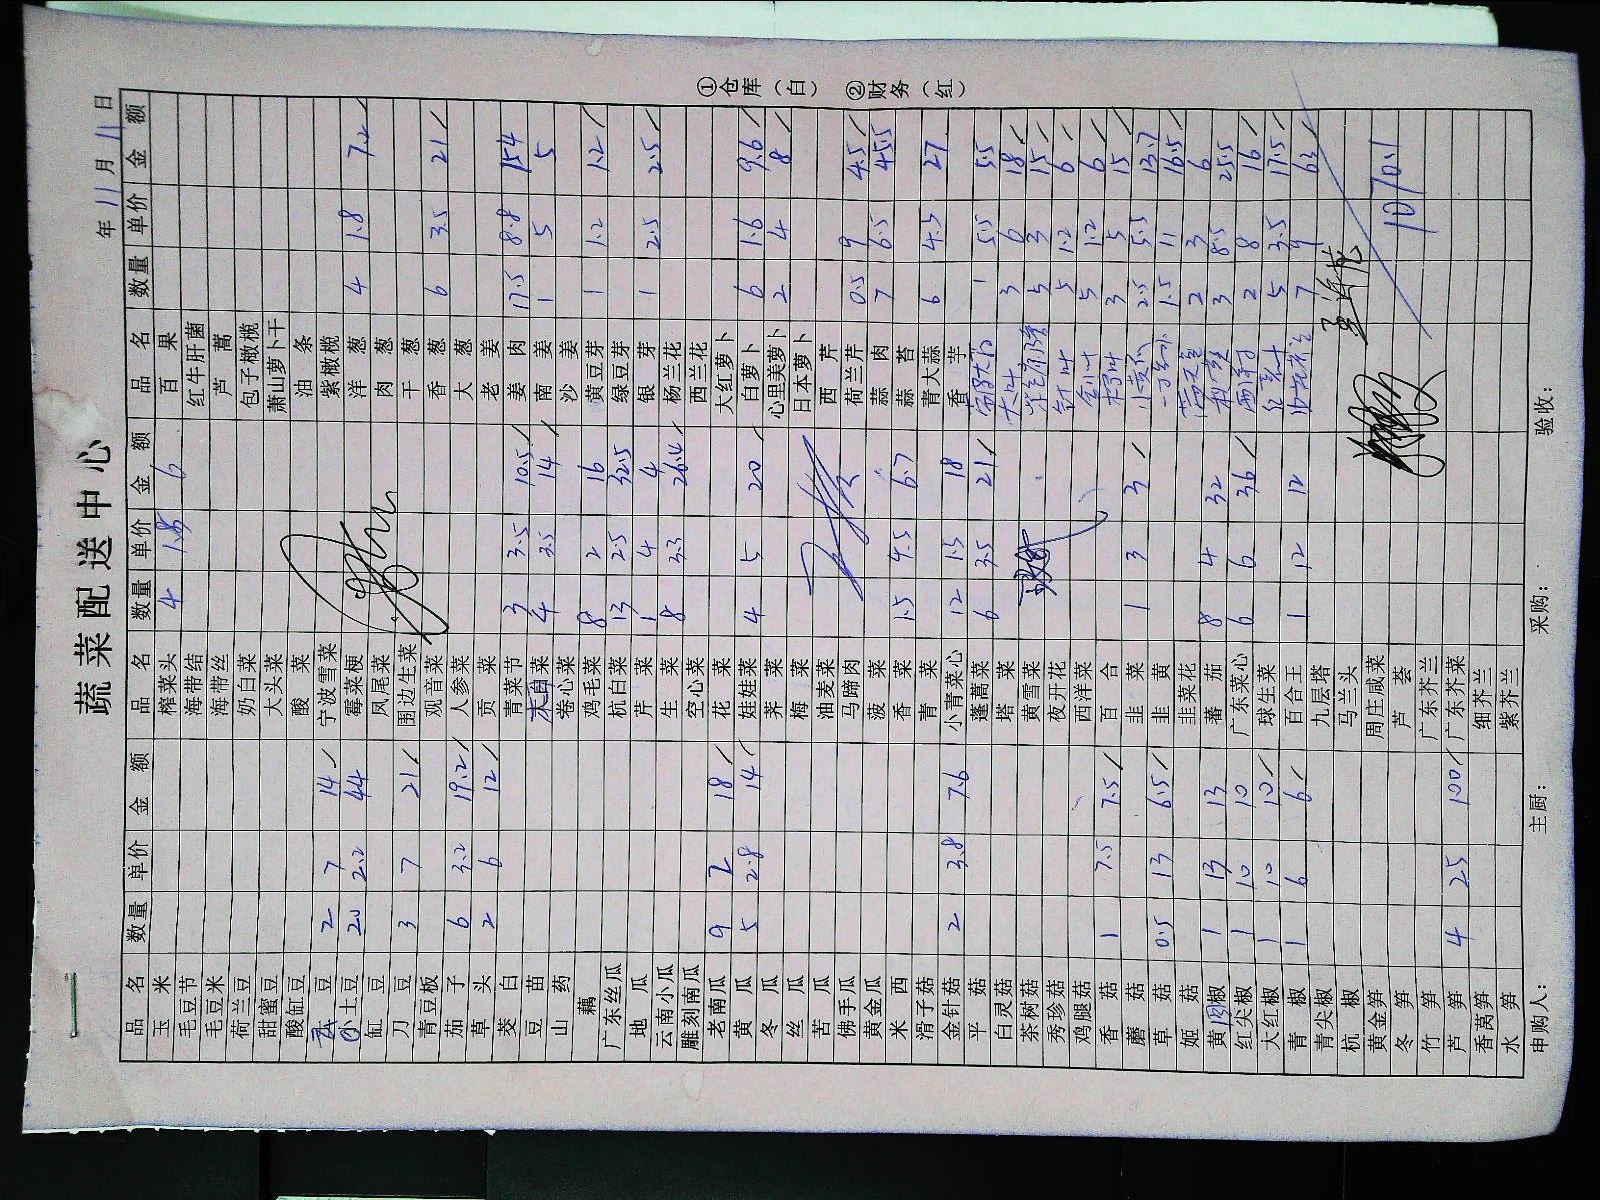 蔬菜配送中心
年 11 月 11 日
品名 数量 单价 金额 品名 数量 单价 金额 品名 数量 单价 金额
玉米 榨菜头 4 1.5 6 百果
毛豆节 海带结 红牛肝菌
毛豆米 海带丝 芦蒿
荷兰豆 奶白菜 包子橄榄
甜蜜豆 大头菜 萧山萝卜干
酸缸豆 酸菜 油条
豆 2 7 14 宁波雪菜 紫橄榄
小土豆 20 2.2 44 霉菜梗 洋葱 4 1.8 7.2
缸豆 凤尾菜 肉葱
刀豆 3 7 21 围边生菜 干葱
青豆板 观音菜 香葱 6 3.5 21
茄子 6 3.2 19.2 人参菜 大葱
草头 2 6 12 贡菜 老姜
茭白 青菜节 3 3.5 10.5 姜肉 17.5 8.8 154
豆苗 木耳菜 4 3.5 14 南姜 1 5 5
山药 卷心菜 沙姜
藕 鸡毛菜 8 2 16 黄豆芽 1 1.2 1.2
广东丝瓜 杭白菜 13 2.5 32.5 绿豆芽
地瓜 芹菜 1 4 4 银芽 1 2.5 2.5
云南小瓜 生菜 8 3.3 26.4 杨兰花
雕刻南瓜 空心菜 西兰花
老南瓜 9 2 18 花菜 大红萝卜
黄瓜 5 2.8 14 娃娃菜 4 5 20 白萝卜 6 1.6 9.6
冬瓜 荠菜 心里美萝卜 2 4 8
丝瓜 梅菜 日本萝卜
苦瓜 油麦菜 西芹
佛手瓜 马蹄肉 荷兰芹 0.5 9 4.5
黄金瓜 菠菜 蒜肉 7 6.5 45.5
米西 香菜 1.5 4.5 6.7 蒜苔
滑子菇 青菜 青大蒜 6 4.5 27
金针菇 2 3.8 7.6 小青菜心 12 1.5 18 香芋
平菇 蓬蒿菜 6 3.5 21 1 5.5 5.5
白灵菇 塔菜 大叶 3 6 18
茶树菇 黄雪菜 5 3 15
秀珍菇 夜开花 5 1.2 6
鸡腿菇 西洋菜 5 1.2 6
香菇 1 7.5 7.5 百合 3 5 15
蘑菇 韭菜 1 3 3 小黄瓜 2.5 5.5 13.7
草菇 0.5 13 6.5 韭黄 1.5 11 16.5
姬菇 韭菜花 2 3 6
黄肉椒 1 13 13 蕃茄 8 4 32 3 8.5 25.5
红尖椒 1 10 10 广东菜心 6 6 36 2 8 16
大红椒 1 10 10 球生菜 5 3.5 17.5
青椒 1 6 6 百合王 1 12 12 7 9 63
青尖椒 九层塔
杭椒 马兰头
黄金笋 周庄咸菜
冬笋 芦荟 1070.1
竹笋 广东芥兰
芦笋 4 25 100 广东芥菜
香莴笋 细芥兰
水笋 紫芥兰
申购人： 主厨： 采购： 验收：
①仓库（白） ②财务（红）